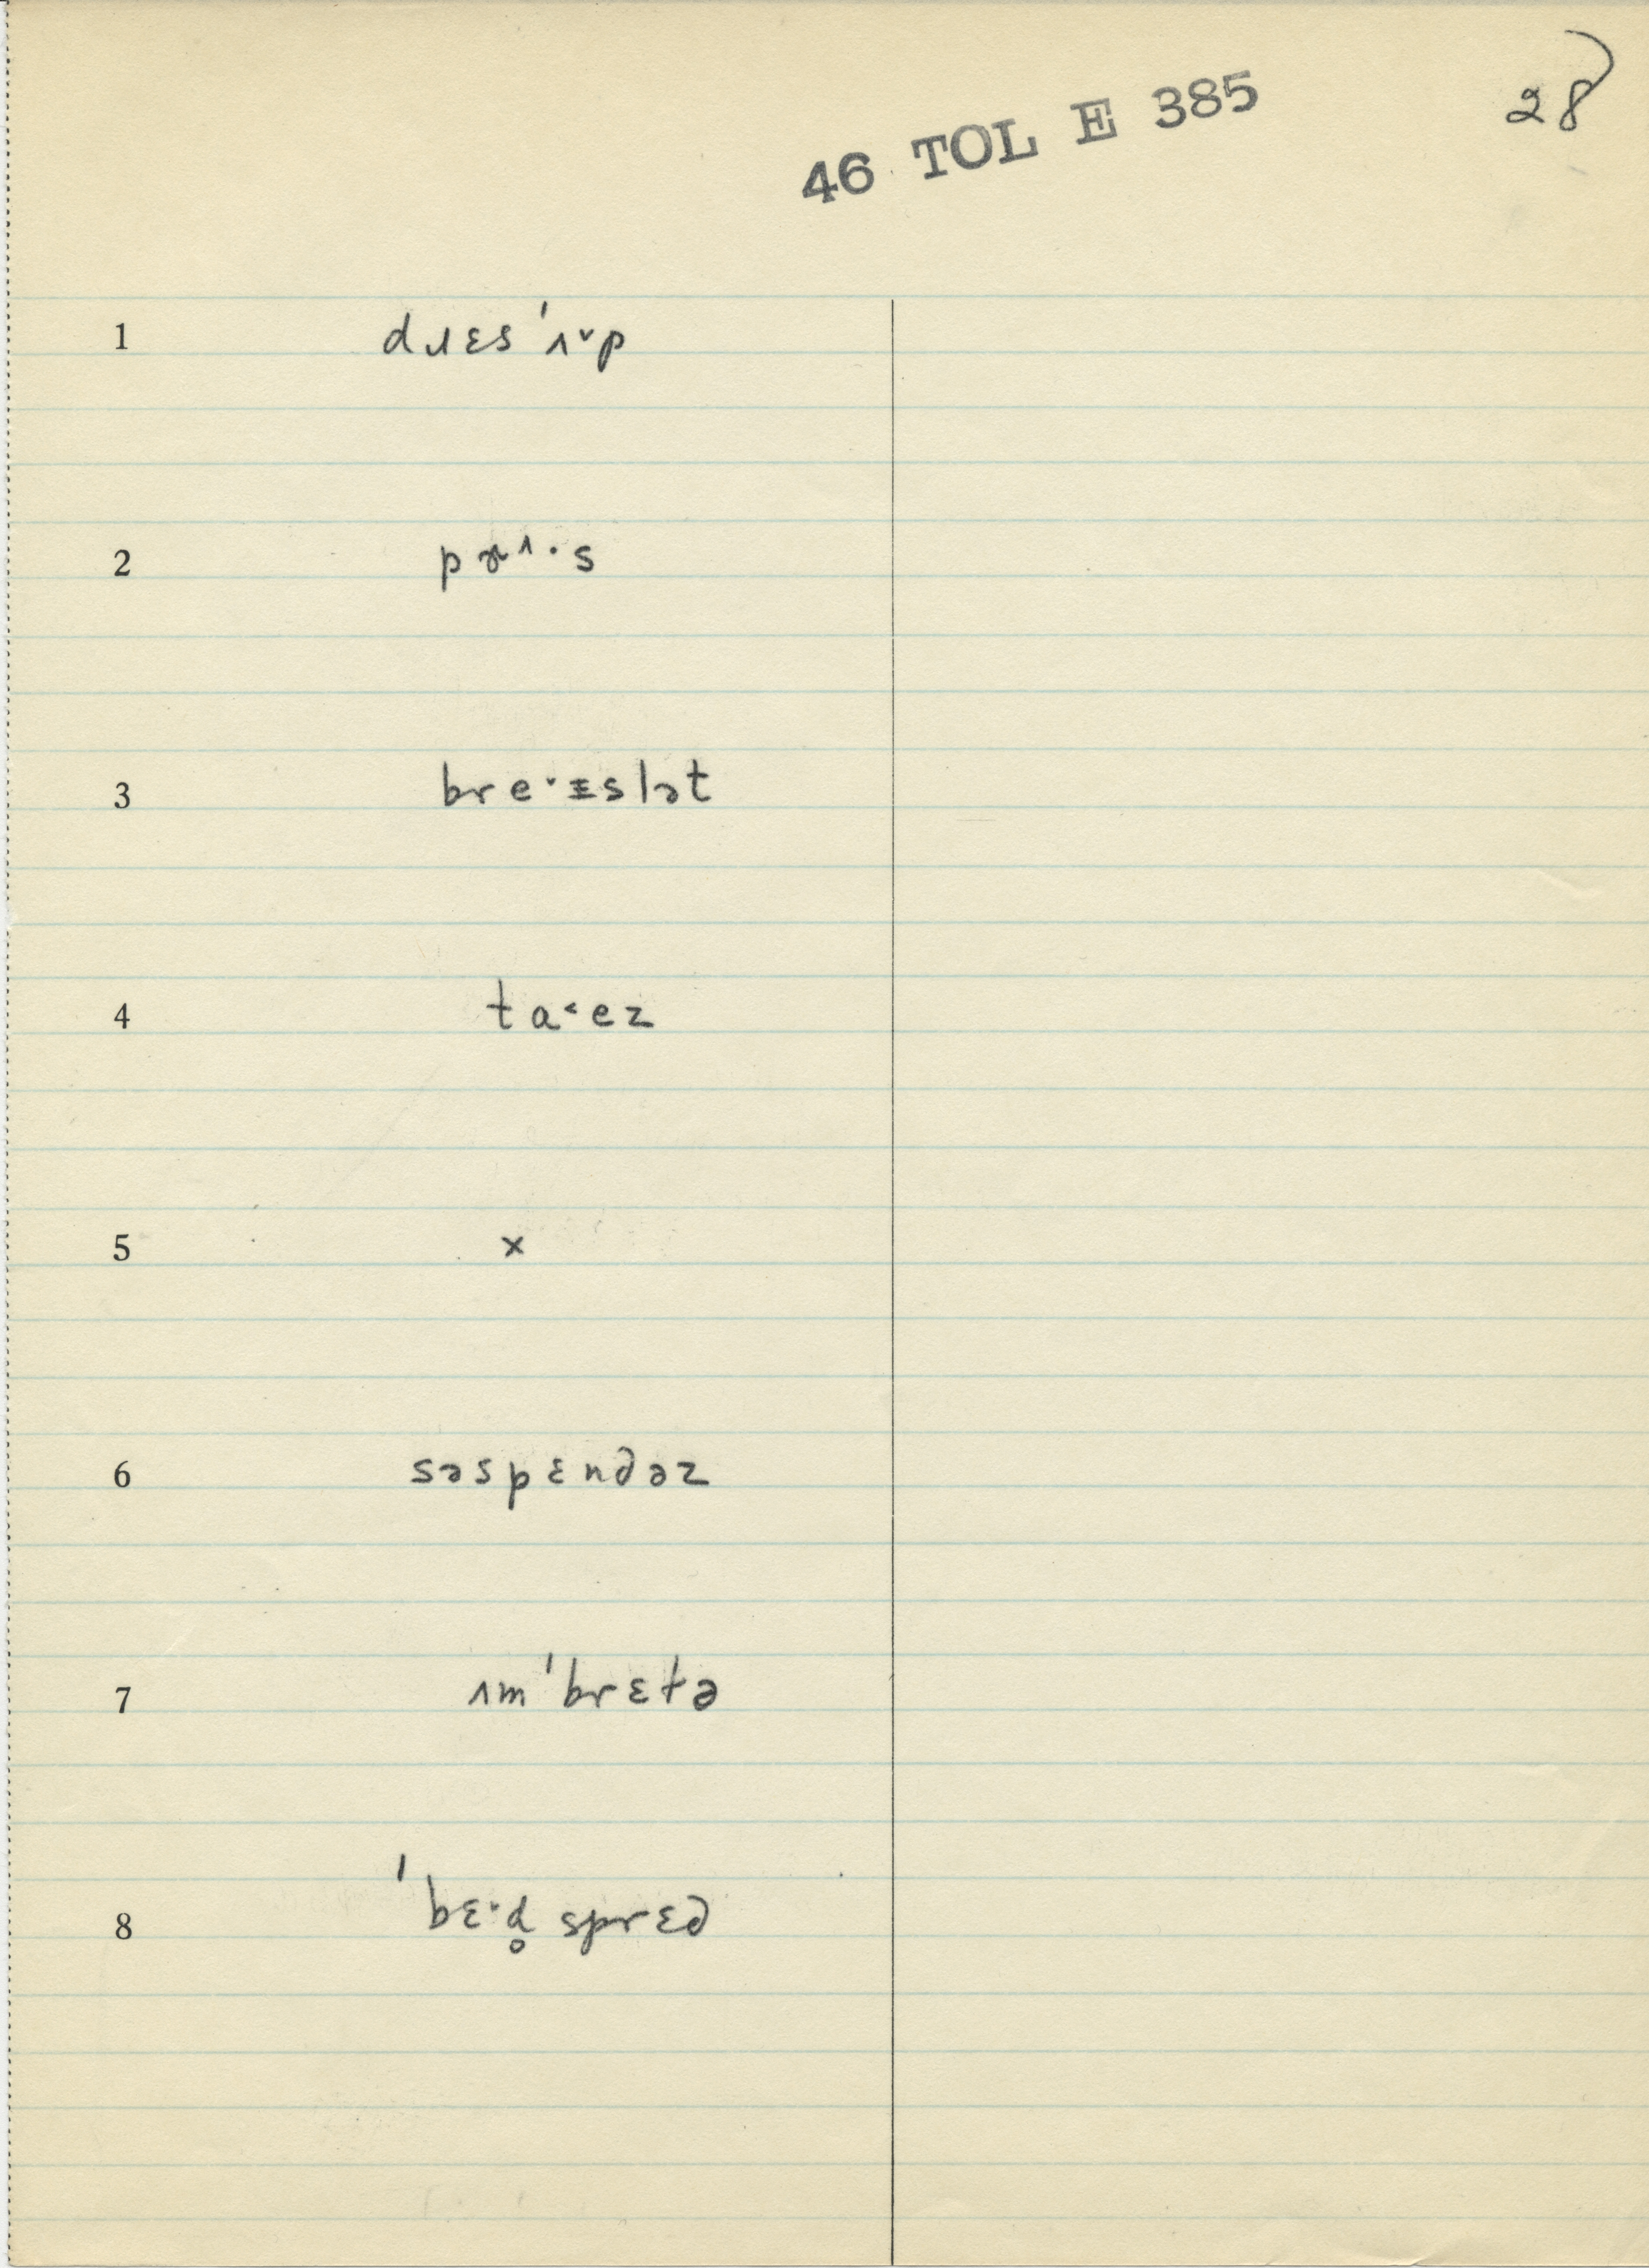 28
46 TOL E 385
1 dɹɛs ˈʌ˅p
2 pɚ^·s
3 bre·ɪslət
4 ta˂ez
5 x
6 səspɛndəz
7 ɪmˈbrɛtə
8 ˈbɛ·d̥ sprɛd